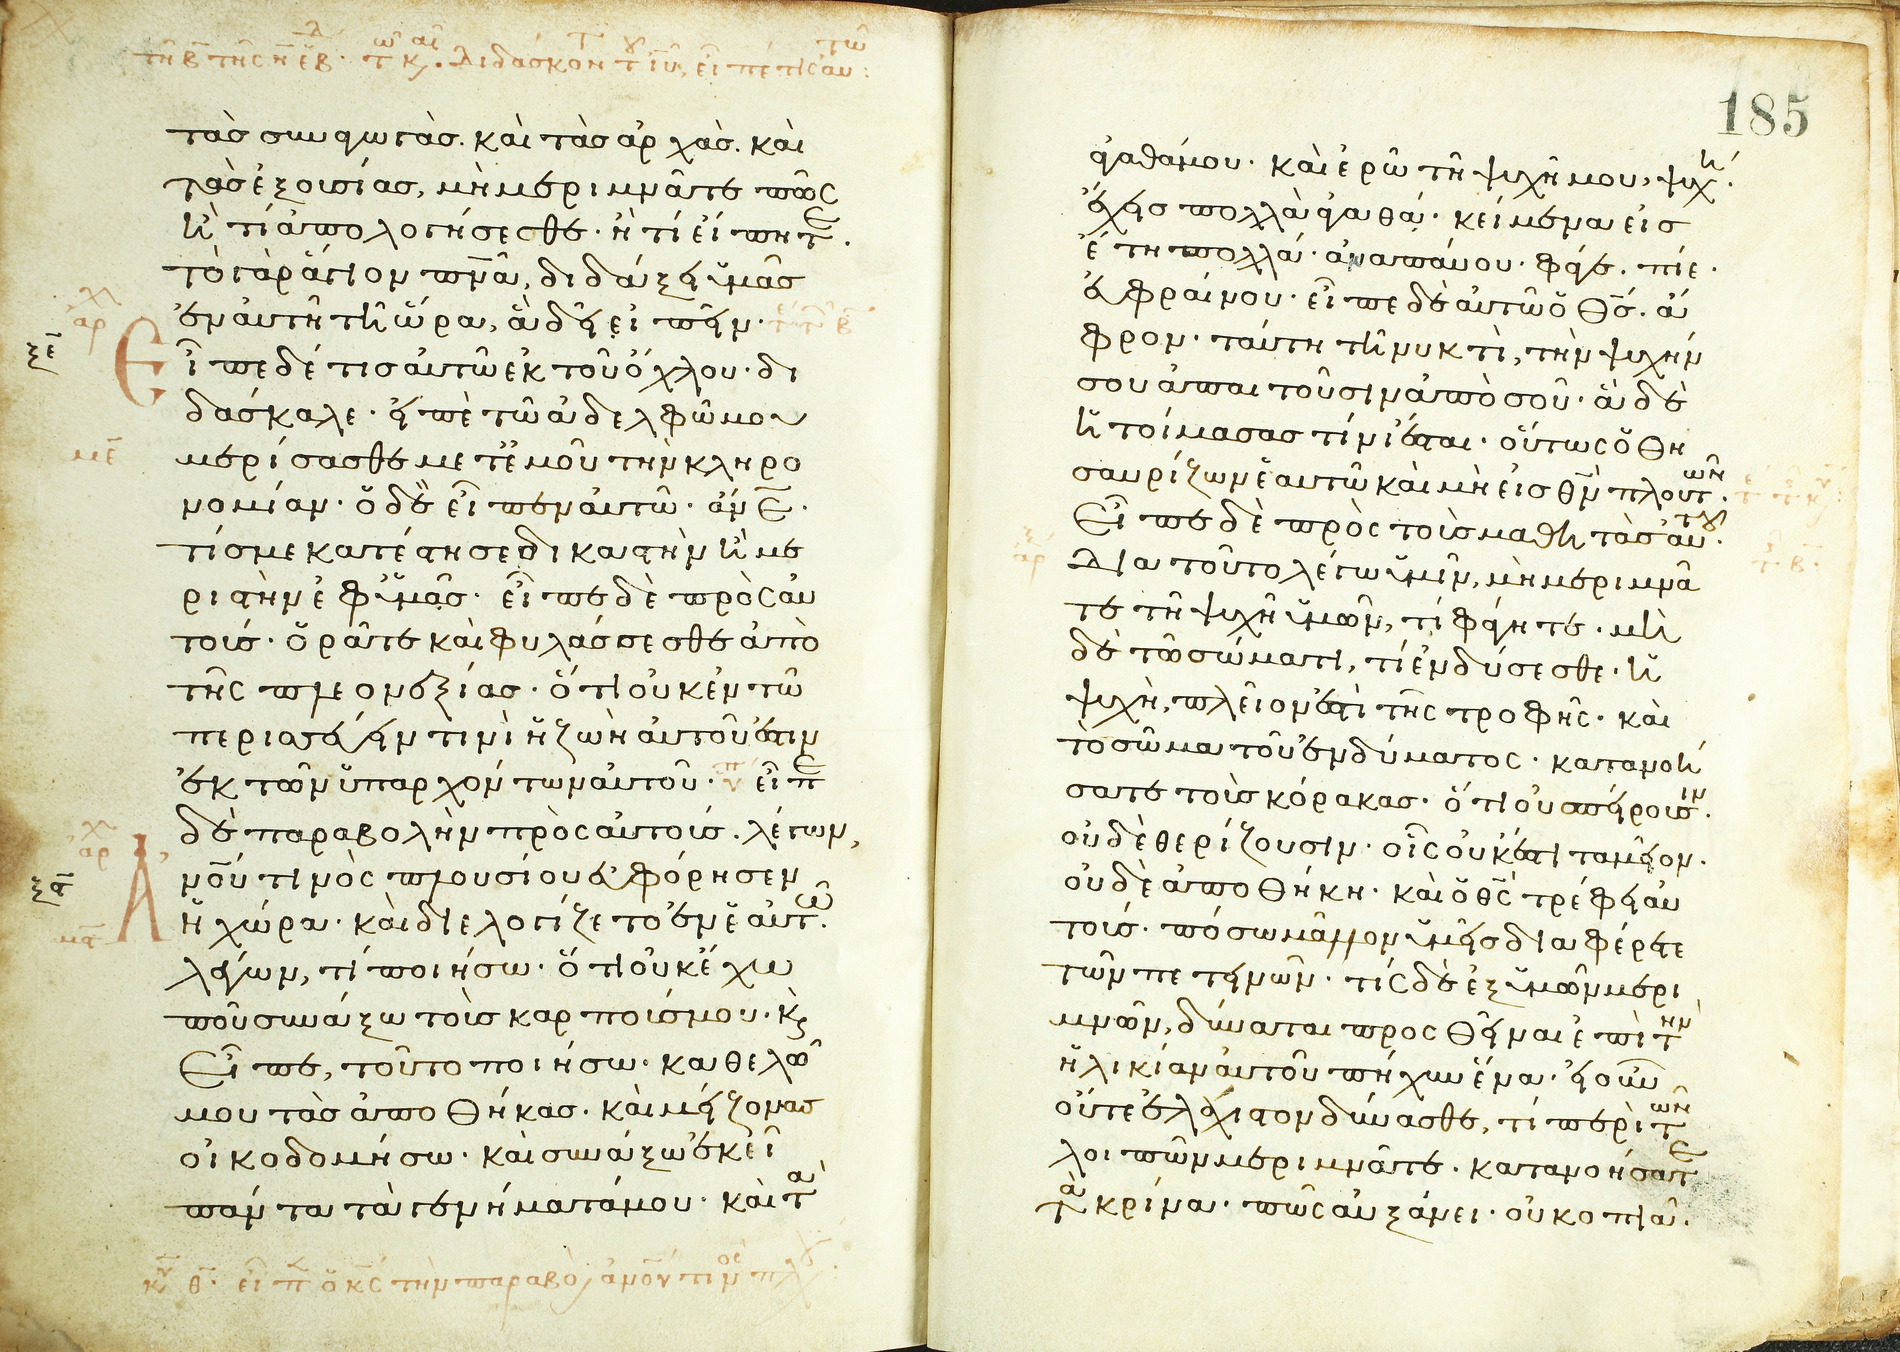 τῆ β τῆς η ἑβδ. τῶ καιρ. διδάσκοντ τ ιυ, εἶπέ τις αυτῶ:
τὰσ συναγωγὰσ. καὶ τὰσ ἀρχὰσ. καὶ
τὰσ ἐξουσίασ, μὴ μεριμνᾶτε πῶς
ἢ τί ἀπολογήσεσθε. ἢ τί εἴπητε.
τὸ γὰρ ἅγιον πνᾶ, διδάξει ὑμᾶσ
ἐν αὐτῆ τῆ ὥρα, ἃ δεῖ εἰπεῖν.
Εἶπε δέ τισ αὐτῶ ἐκ τοῦ ὄχλου. δι
δάσκαλε. εἰπὲ τῶ ἀδελφῶ μου
μερίσασθε μετ' ἐμοῦ τὴν κληρο
νομίαν. ὁ δὲ εἶπεν αὐτῶ. ἄνε.
τίσ με κατέστησε δικαστὴν ἢ με
ριστὴν ἐφ' ὑμᾶσ. εἶπε δὲ πρὸς αὐ
τούσ. ὁρᾶτε καὶ φυλάσσεσθε ἀπὸ
τῆς πλεονεξίασ. ὅτι οὐκ ἐν τῶ
περισσεύειν τινὶ ἡ ζωὴ αὐτοῦ ἐστιν
ἐκ τῶν ὑπαρχόντων αὐτοῦ. εἶπε
δὲ παραβολὴν πρὸς αὐτούσ. λέγων,
Ἀνου τινὸς πλουσίου εὐφόρησεν
ἡ χώρα. καὶ διελογίζετο ἐν ἑαυτῶ.
λέγων, τί ποιήσω. ὅτι οὐκ ἔχω
ποῦ συνάξω τοὺσ καρπούσ μου. κὶ
εἶπε, τοῦτο ποιήσω. καθελῶ
μου τὰσ ἀποθήκασ. καὶ μείζονασ
οἰκοδομήσω. καὶ συνάξω ἐκεῖ
πάντα τὰ γενήματά μου. καὶ τὰ
κυ θ. εἶπ ὁ κς τὴν παραβολ ἀνου τιν πλ
185
ἀγαθά μου. καὶ ἐρῶ τῆ ψυχῆ μου, ψυχή.
ἔχεισ πολλὰ ἀγαθά. κείμενα εἰσ
ἔτη πολλά. ἀναπάυου. φάγε. πίε.
εὐφραίνου. εἶπε δὲ αὐτῶ ὁ θσ. ἄ
φρον. ταύτη τῆ νυκτὶ, τὴν ψυχήν
σου ἀπαιτοῦσιν ἀπὸ σοῦ. ἃ δὲ
ἡτοίμασασ τίνι ἔσται. οὕτως ὁ θη
σαυρίζων ἑαυτῶ καὶ μὴ εἰσ θν πλουτῶν.
Εἶπε δὲ πρὸς τοὺσ μαθητὰσ αὐτοῦ.
Διὰ τοῦτο λέγω ὑμῖν, μὴ μεριμνᾶ
τε τῆ ψυχῆ ὑμῶν, τί φάγητε. μὴ
δὲ τῶ σώματι, τί ἐνδύσεσθε. ἡ
ψυχὴ, πλεῖον ἐστὶ τῆς τροφῆς. καὶ
τὸ σῶμα τοῦ ἐνδύματος. κατανοή
σατε τοὺσ κόρακασ. ὅτι οὐ σπείρουσιν.
οὐδὲ θερίζουσιν. οἷς οὐκ ἔστι ταμεῖον.
οὐδὲ ἀποθήκη. καὶ ὁ θς τρέφει αὐ
τούσ. πόσω μᾶλλον ὑμεῖσ διαφέρετε
τῶν πετεινῶν. τίς δὲ ἐξ ὑμῶν μερι
μνῶν, δύναται προσθεῖναι ἐπὶ τὴν
ἡλικίαν αὐτοῦ πήχυν ἕνα. εἰ οὖν
οὔτε ἐλάχιστον δύνασθε, τί περὶ τῶν
λοιπῶν μεριμνᾶτε. κατανοήσατε
τὰ κρίνα. πῶς αὐξάνει. οὐ κοπιᾶ.